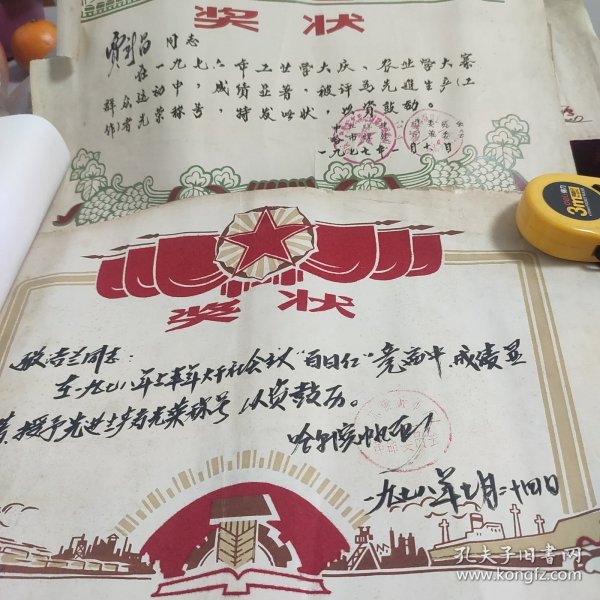 奖状
同志
在一九七六年工业学大庆、农业学大寨
群众运动中，成绩显著，被评为先进生产（工
作）者光荣称号，特发此状，以资鼓励。
一九七七年 月十 日
奖状
敬 兰同志：
在一九七八年上半年大干社会主义"百日红"竞赛中，成绩显
著，授予先进生产者光荣称号，以资鼓励。
哈尔滨
一九七八年七月二十四日
3m
孔夫子旧书网
www.kongfz.com